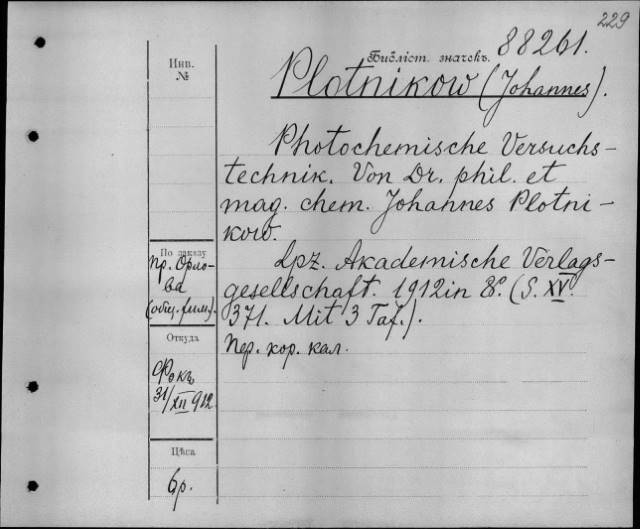 229
Библіот. значекъ. 88261.
Инв.
№
Plotnikow (Johannes).
Photochemische Versuchs-
technik. Von Dr. phil. et
mag. chem. Johannes Plotni-
kow.
Lpz. Akademische Verlags-
gesellschaft. 1912 in 8º. (S. XV.
371. Mit 3 Taf.).
Пер. кор. кал.
По заказу
пр. Орло-
ва
Откуда
31/XII 912
Цѣна
6 р.